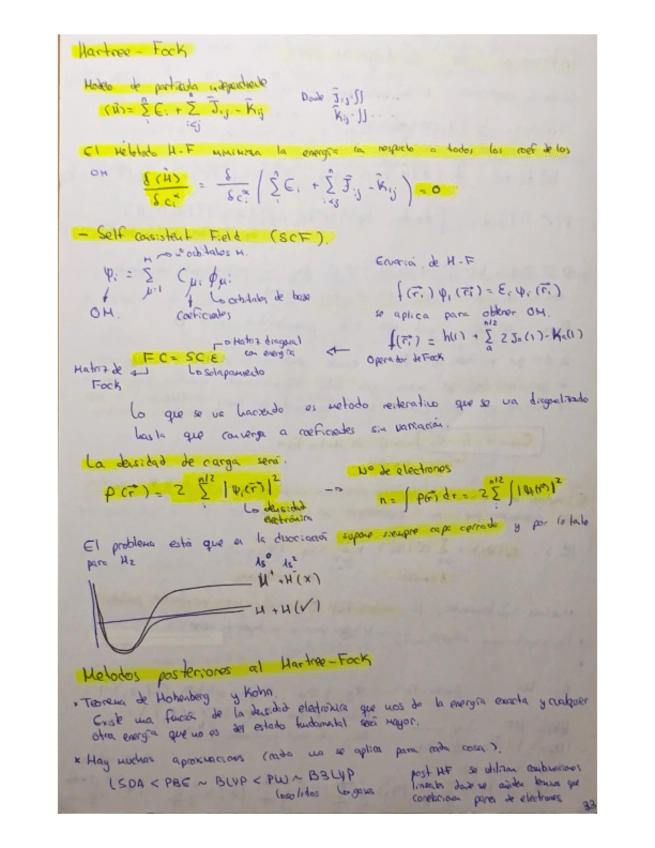 Hartree - Fock
Modelo de partícula independiente
⟨Ĥ⟩ = Σ_i^n Є_i + Σ_{i<j}^n J̄_ij - K̄_ij
Donde J̄_ij ∫∫ ....
K̄_ij ∫∫ ....
El Método H-F minimiza la energía con respecto a todos los coef de los
OM
δ⟨Ĥ⟩ / δc_i^* = δ / δc_i^* ( Σ_i^n Є_i + Σ_{i<j}^n J̄_ij - K_ij ) = 0
- Self consistent Field (SCF).
M → nº orbitales M.
φ_i = Σ_{μ=1}^M C_μi ϕ_μi
orbitales de base
OM. coeficientes
Ecuación de H-F
f(r⃗_i) φ_i(r⃗_i) = Ɛ_i φ_i(r⃗_i)
se aplica para obtener OM.
f(r⃗_i) = h(1) + Σ_a^{n/2} 2J_a(1) - K_a(1)
Operador de Fock
Matriz diagonal
con energía
FC = SCE
Matriz de
Fock
Solapamiento
Lo que se va haciendo es metodo reiterativo que se va diagonalizado
hasta que converga a coeficientes sin variación.
La densidad de carga será.
Nº de electrones
ρ(r⃗) = 2 Σ_i^{n/2} |ψ_i(r⃗)|²
n = ∫ρ(r⃗) dr = 2 Σ_i^{n/2} ∫|ψ_i(r⃗)|²
densidad
electrónica
El problema está que en la disociación supone siempre capa cerrada y por lo tanto
para H₂
1s⁰ 1s²
H⁺ + H⁻ (x)
H + H (✓)
Metodos posteriores al Hartree-Fock
* Teorema de Hohenberg y Kohn.
Existe una función de la densidad electrónica que nos da la energía exacta y cualquier
otra energía que no es del estado fundamental será mayor.
* Hay muchas aproximaciones (cada una se aplica para cada cosa).
LSDA < PBE ~ BLYP < PW ~ B3LYP
sólidos gases
post HF se utilizan combinaciones
lineales donde se añaden que
pares de electrones
33